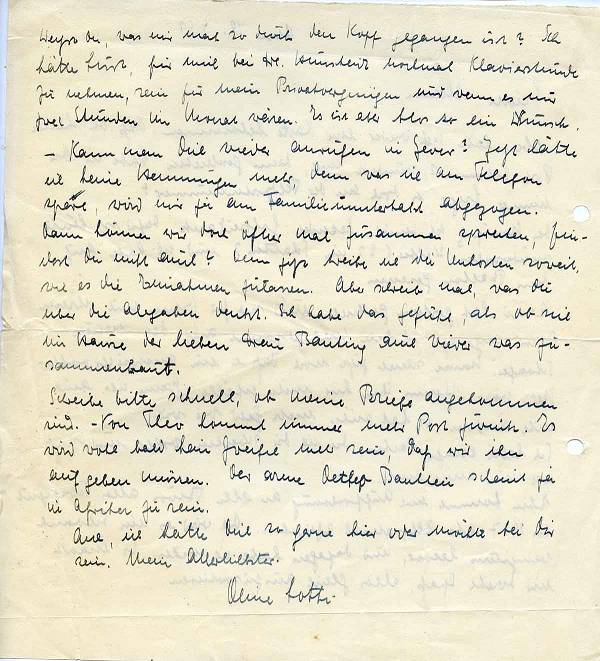 Weißt du, was mir mal so durch den Kopf gegangen ist? Ich
hätte Lust, für mich bei Dr. nochmal Klavierstunde
zu nehmen, rein für mein Privatvergnügen und wenn es nur
zwei Stunden im Monat wären. Es ist aber blos so ein Wunsch.
– Kann man Dich wieder anrufen in Jever? Jetzt hätte
ich keine Hemmungen mehr, denn was ich am Telefon
spare, wird mir ja am Familienunterhalt abgezogen.
Dann können wir doch öfter mal zusammen sprechen, fin-
dest Du nicht auch? Denn jetzt treibe ich die Unkosten soweit,
wie es die Einnahmen zulassen. Aber schreib mal, was Du
über die Abgaben denkst. Ich habe das Gefühl, als ob sich
im Hause der lieben Frau Banting auch wieder was zu-
sammenbraut.
Schreibe bitte schnell, ob meine Briefe angekommen
sind. – Von Theo kommt immer mehr Post zurück. Es
wird wohl bald kein Zweifel mehr sein, daß wir ihn
aufgeben müssen. Der arme Detlef scheint ja
in Afrika zu sein.
Ach, ich hätte Dich so gerne hier oder möchte bei Dir
sein. Mein Allerliebster.
Deine Lotti.